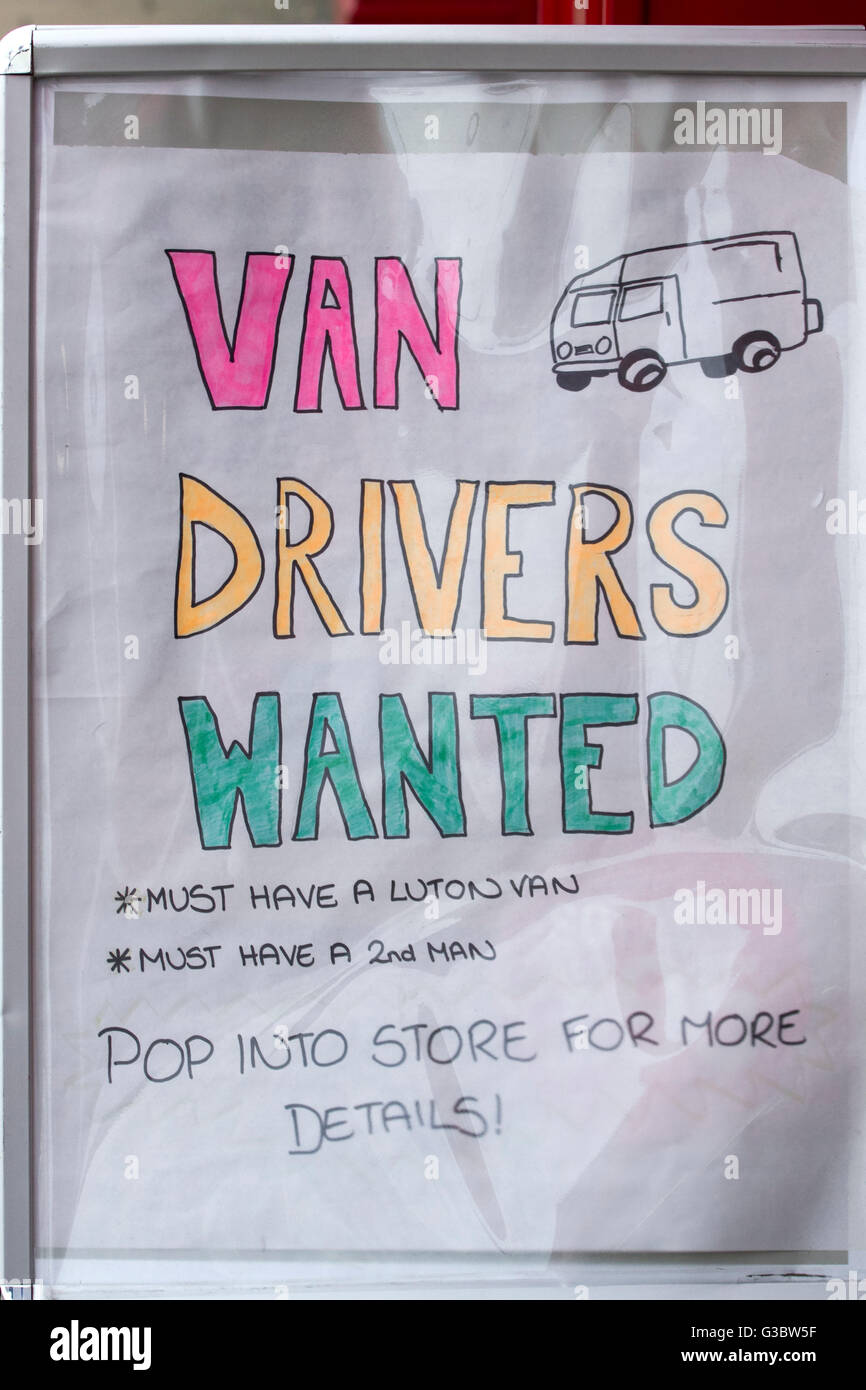 VAN
DRIVERS
WANTED
*MUST HAVE A LUTON VAN
*MUST HAVE A 2nd MAN
POP INTO STORE FOR MORE
DETAILS!
alamy
Image ID: G3BW5F
www.alamy.com